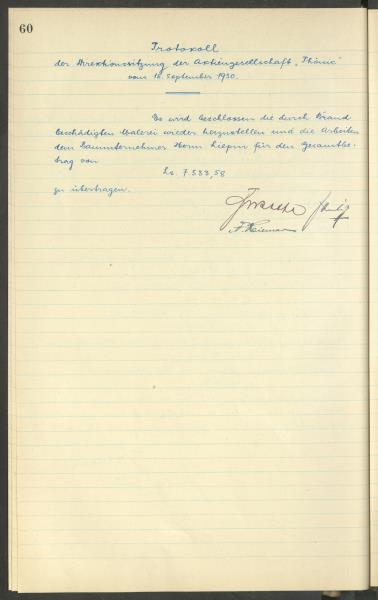 60
Protokoll
der Direktionssitzung der Aktiengesellschaft "Phönix"
vom 10. September 1930.
Es wird beschlossen die durch Brand
beschädigten Malerei wieder herzustellen und die Arbeiten
dem Bauunternehmer Herrn Liepin für den Gesamtbe-
trag von
Ls. 7.583,58
zu übertragen.